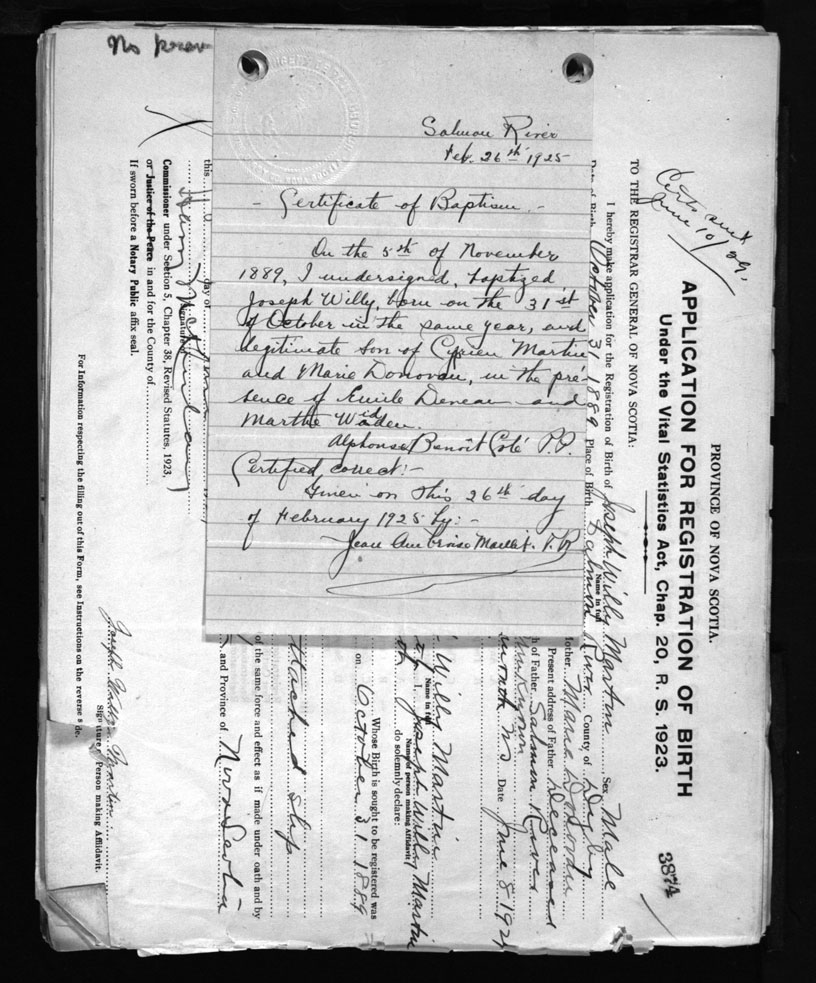 No prev
Salmon River
Feb. 26th 1925
- Certificate of Baptism. -
On the 5th of November
1889, I undersigned, baptized
Joseph Willy, born on the 31st
of October in the same year, and
legitimate son of Cyrien Martin
and Marie Donovan, in the pré-
sence of Emile Deneau and
Marthe
Alphonse Benoît Coté P.P.
Certified correct:-
Given on this 26th day
of February 1925 by:-
Jean Ambroise Maillet. P.P.
Certs sent
June 10/29.
PROVINCE OF NOVA SCOTIA.
APPLICATION FOR REGISTRATION OF BIRTH
Under the Vital Statistics Act, Chap. 20, R. S. 1923.
3874
TO THE REGISTRAR GENERAL OF NOVA SCOTIA:
I hereby make application for the Registration of Birth of Joseph Willy Martin Sex Male
Name in full
Date of Birth October 31 1889 Place of Birth Salmon River County of Digby
Mother Maria Donovan
Present address of Father Deceased
h of Father Salmon River
unknown
Date June 8 192
Willy Martin
Name in full
I, Joseph Willy Martin
Name of person making Affidavit
of do solemnly declare:
Whose Birth is sought to be registered was
on October 31 1889
ttached slip
of the same force and effect as if made under oath and by
and Province of Nova Scotia
this day of
Signature of
Commissioner under Section 5, Chapter 38, Revised Statutes, 1923,
or Justice of the Peace in and for the County of
If sworn before a Notary Public affix seal.
Joseph Martin
Signature Person making Affidavit.
For Information respecting the filling out of this Form, see Instructions on the reverse side.